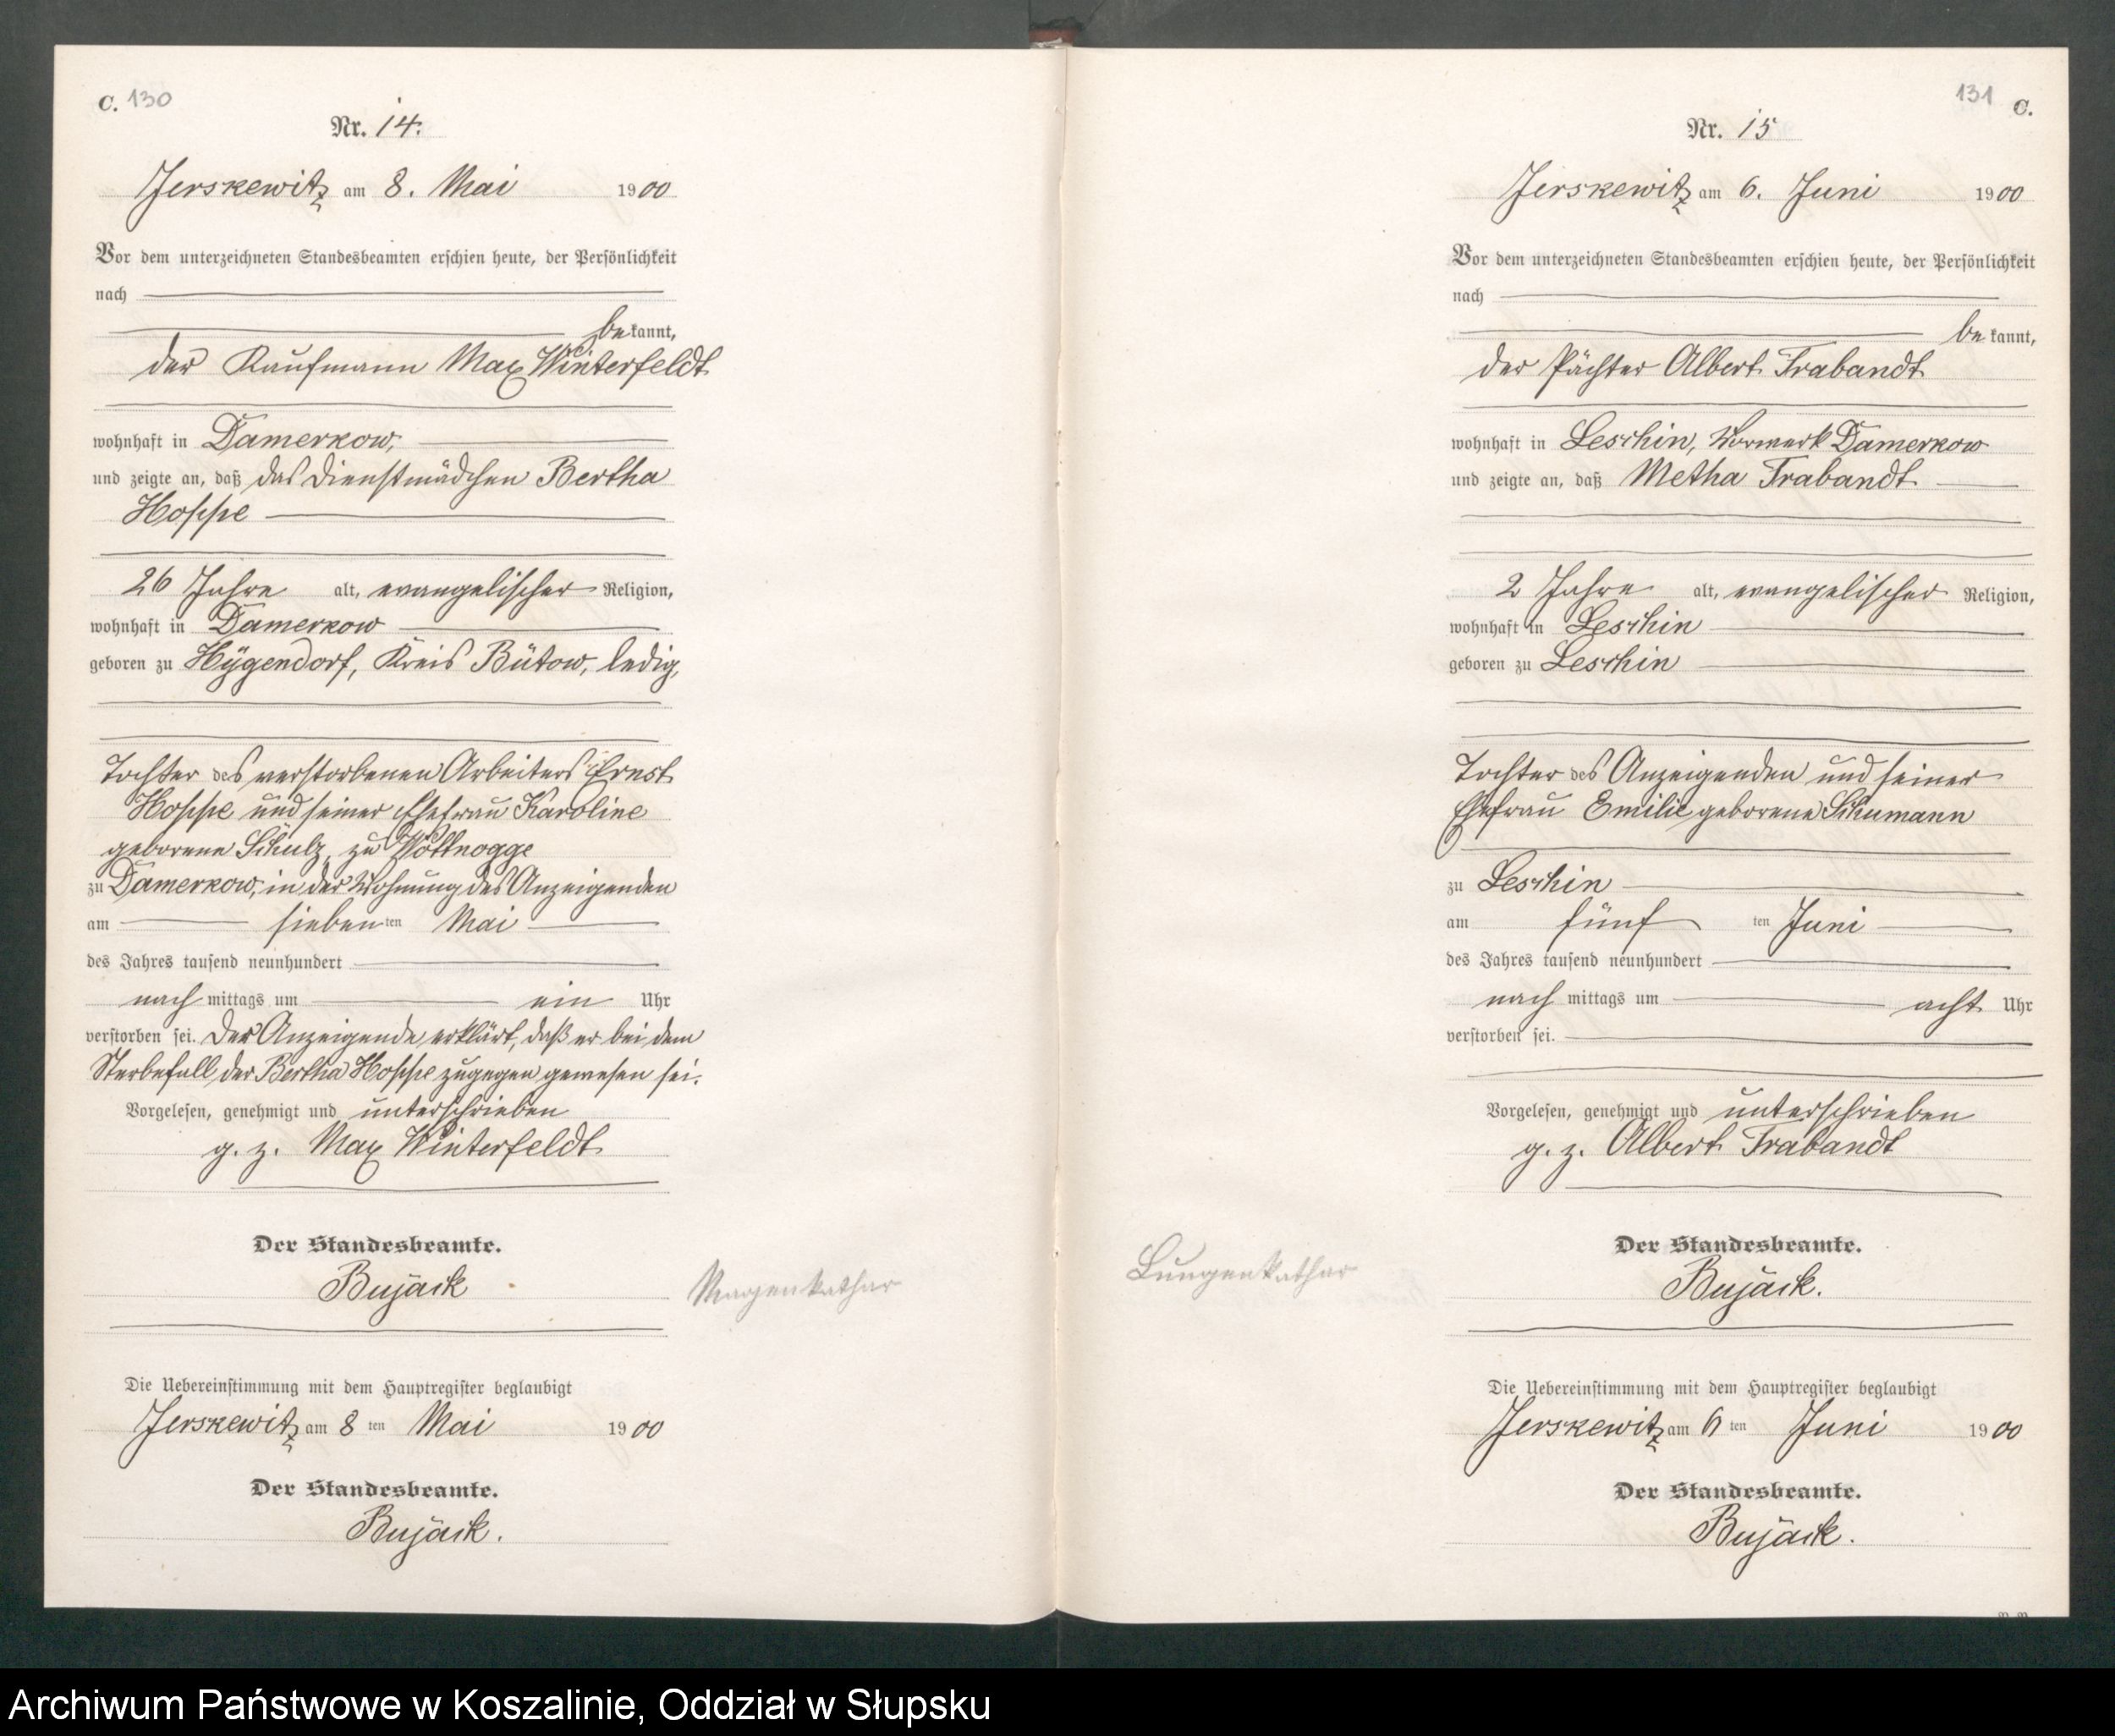 C. 130
Nr. 14.
Jerskewitz am 8. Mai 1900
Vor dem unterzeichneten Standesbeamten erschien heute, der Persönlichkeit
nach
bekannt,
der Kaufmann Max Winterfeldt
wohnhaft in Damerkow,
und zeigte an, daß das Dienstmädchen Bertha
Hoppe
26 Jahre alt, evangelischer Religion,
wohnhaft in Damerkow
geboren zu Hygendorf, Kreis Bütow, ledig,
Tochter des verstorbenen Arbeiters Ernst
Hoppe und seiner Ehefrau Karoline
geborene Schulz, zu Wottnogge
zu Damerkow, in der Wohnung des Anzeigenden
am siebenten Mai
des Jahres tausend neunhundert
nach mittags um ein Uhr
verstorben sei. Der Anzeigende erklärt, daß er bei dem
Sterbefall der Bertha Hoppe zugegen gewesen sei.
Vorgelesen, genehmigt und unterschrieben
g. z. Max Winterfeldt
Der Standesbeamte.
Bujack
Magenkathar
Die Uebereinstimmung mit dem Hauptregister beglaubigt
Jerskewitz am 8 ten Mai 1900
Der Standesbeamte.
Bujack.
131 C.
Nr. 15
Jerskewitz am 6. Juni 1900
Vor dem unterzeichneten Standesbeamten erschien heute, der Persönlichkeit
nach
bekannt,
der Pächter Albert Trabandt
wohnhaft in Leschin, Vorwerk Damerkow
und zeigte an, daß Metha Trabandt
2 Jahre alt, evangelischer Religion,
wohnhaft in Leschin
geboren zu Leschin
Tochter des Anzeigenden und seiner
Ehefrau Emilie geborene Schumann
zu Leschin
am fünf ten Juni
des Jahres tausend neunhundert
nach mittags um acht Uhr
verstorben sei.
Vorgelesen, genehmigt und unterschrieben
g. z. Albert Trabandt
Der Standesbeamte.
Bujack.
Lungenkathar
Die Uebereinstimmung mit dem Hauptregister beglaubigt
Jerskewitz am 6 ten Juni 1900
Der Standesbeamte.
Bujack.
Archiwum Państwowe w Koszalinie, Oddział w Słupsku